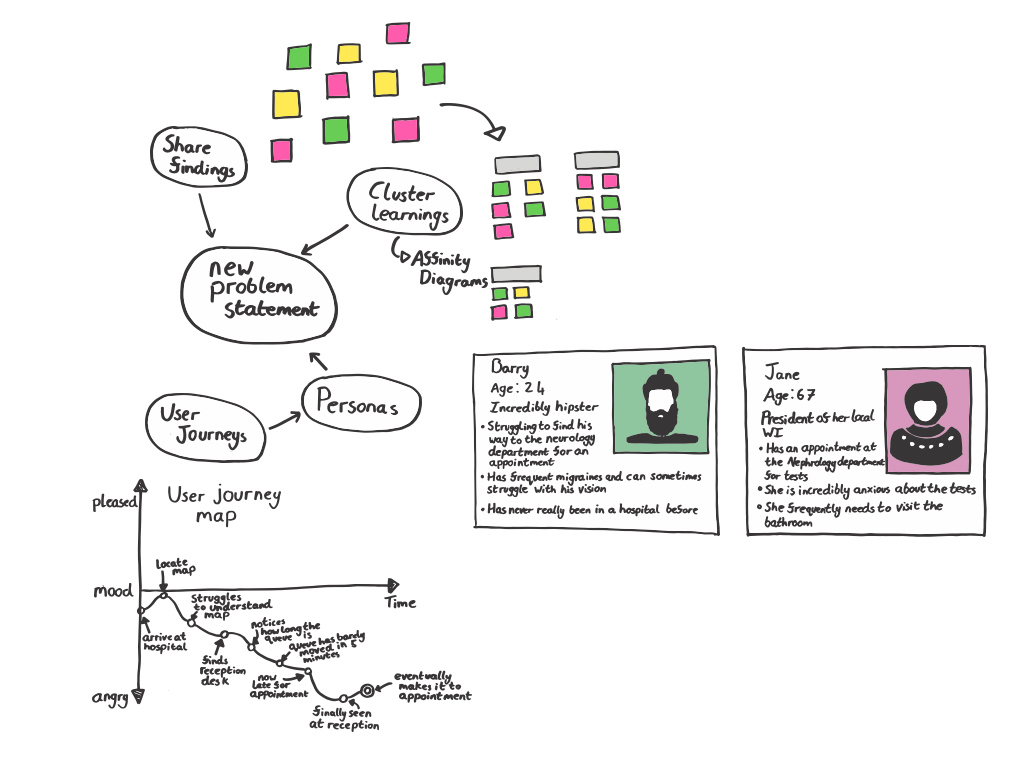 Share
findings
Cluster
learnings
Affinity
Diagrams
new
problem
statement
User
Journeys
Personas
Barry
Age: 24
Incredibly hipster
• Struggling to find his
way to the neurology
department for an
appointment
• Has frequent migraines and can sometimes
struggle with his vision
• Has never really been in a hospital before
Jane
Age: 67
President of her local
WI
• Has an appointment at
the Nephrology department
for tests
• She is incredibly anxious about the tests
• She frequently needs to visit the
bathroom
User journey
map
pleased
mood
angry
Time
arrive at
hospital
locate
map
struggles
to understand
map
finds
reception
desk
notices
how long the
queue is
queue has bardy
moved in 5
minutes
now
late for
appointment
finally seen
at reception
eventually
makes it to
appointment